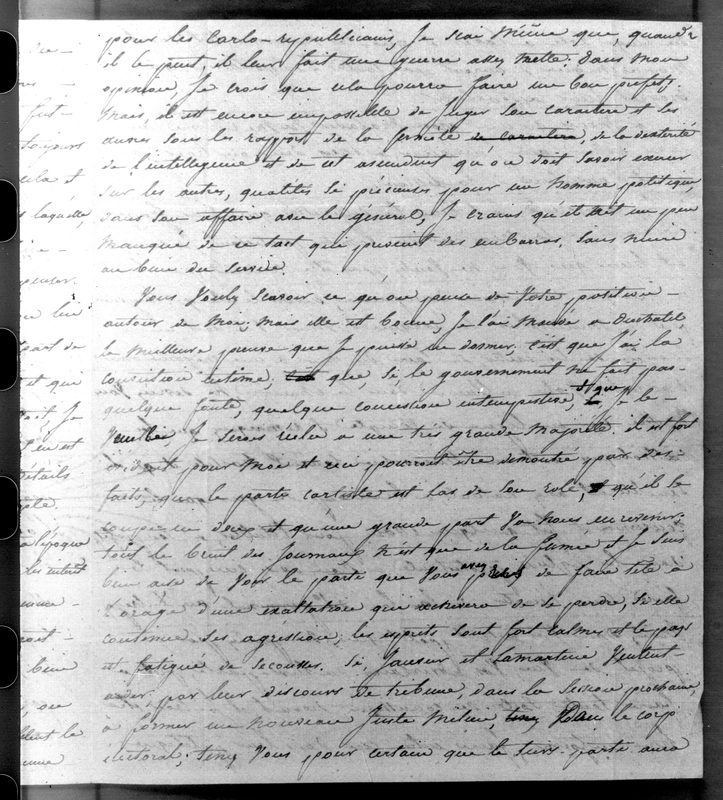 pour les Carlo-republicains, Je scai même que, quand
il le peut, il leur fait une guerre assez nette. Dans mon
opinion, Je crois que cela pourra faire un bon prefet.
Mais, il est encore impossible de Juger son caractere et ses
autres sous les rapports de la fermeté de caractere, de la dexterité
de l'intelligence et de cet ascendant qu'on doit savoir exercer
sur les autres, qualités si précieuses pour un homme politique,
dans son affaire avec le général, Je crains qu'il ait un peu
manqué de ce tact qui previent des embarras, sans nuire
au bien du service.
Vous Voulez Scavoir ce qu'on pense de Votre position
autour de moi; mais elle est bonne, Je l'ai mandé a Duchatel,
la meilleure preuve que Je puisse en donner, c'est que J'ai la
conviction intime, que, Si, le gouvernement ne fait pas
quelque faute, quelque concession intempestive, et que, Je le
Veuille Je serois réelu a une tres grande majorité. il est fort
évident pour moi et ceci pourroit être demontré par des
faits, que le parti carliste est las de son role, qu'il se
coupe en deux et qu'une grande part Va nous en revenir.
tout le bruit des Journaux n'est que de la fumée et Je suis
bien aise de Voir le parti que Vous avez pris de faire tête à
l'orage d'une exaltation qui achevera de se perdre, Si elle
continue ses agressions, les esprits sont fort calmes et le pays
est fatigué de secousses. Si, Janson et Lamartine Veulent
aider par leur discours de tribune, dans la Session prochaine,
à former un nouveau Juste Milieu, Dans le corp
electoral, tenez Vous pour certain que le tiers-parti aura